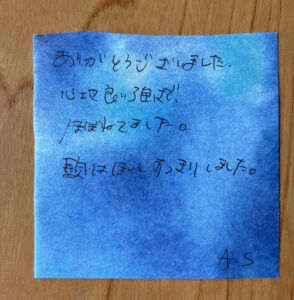 ありがとうございました。
心地良い強さで！
ほぼねてました。
頭はほんとすっきりしました。
A.S